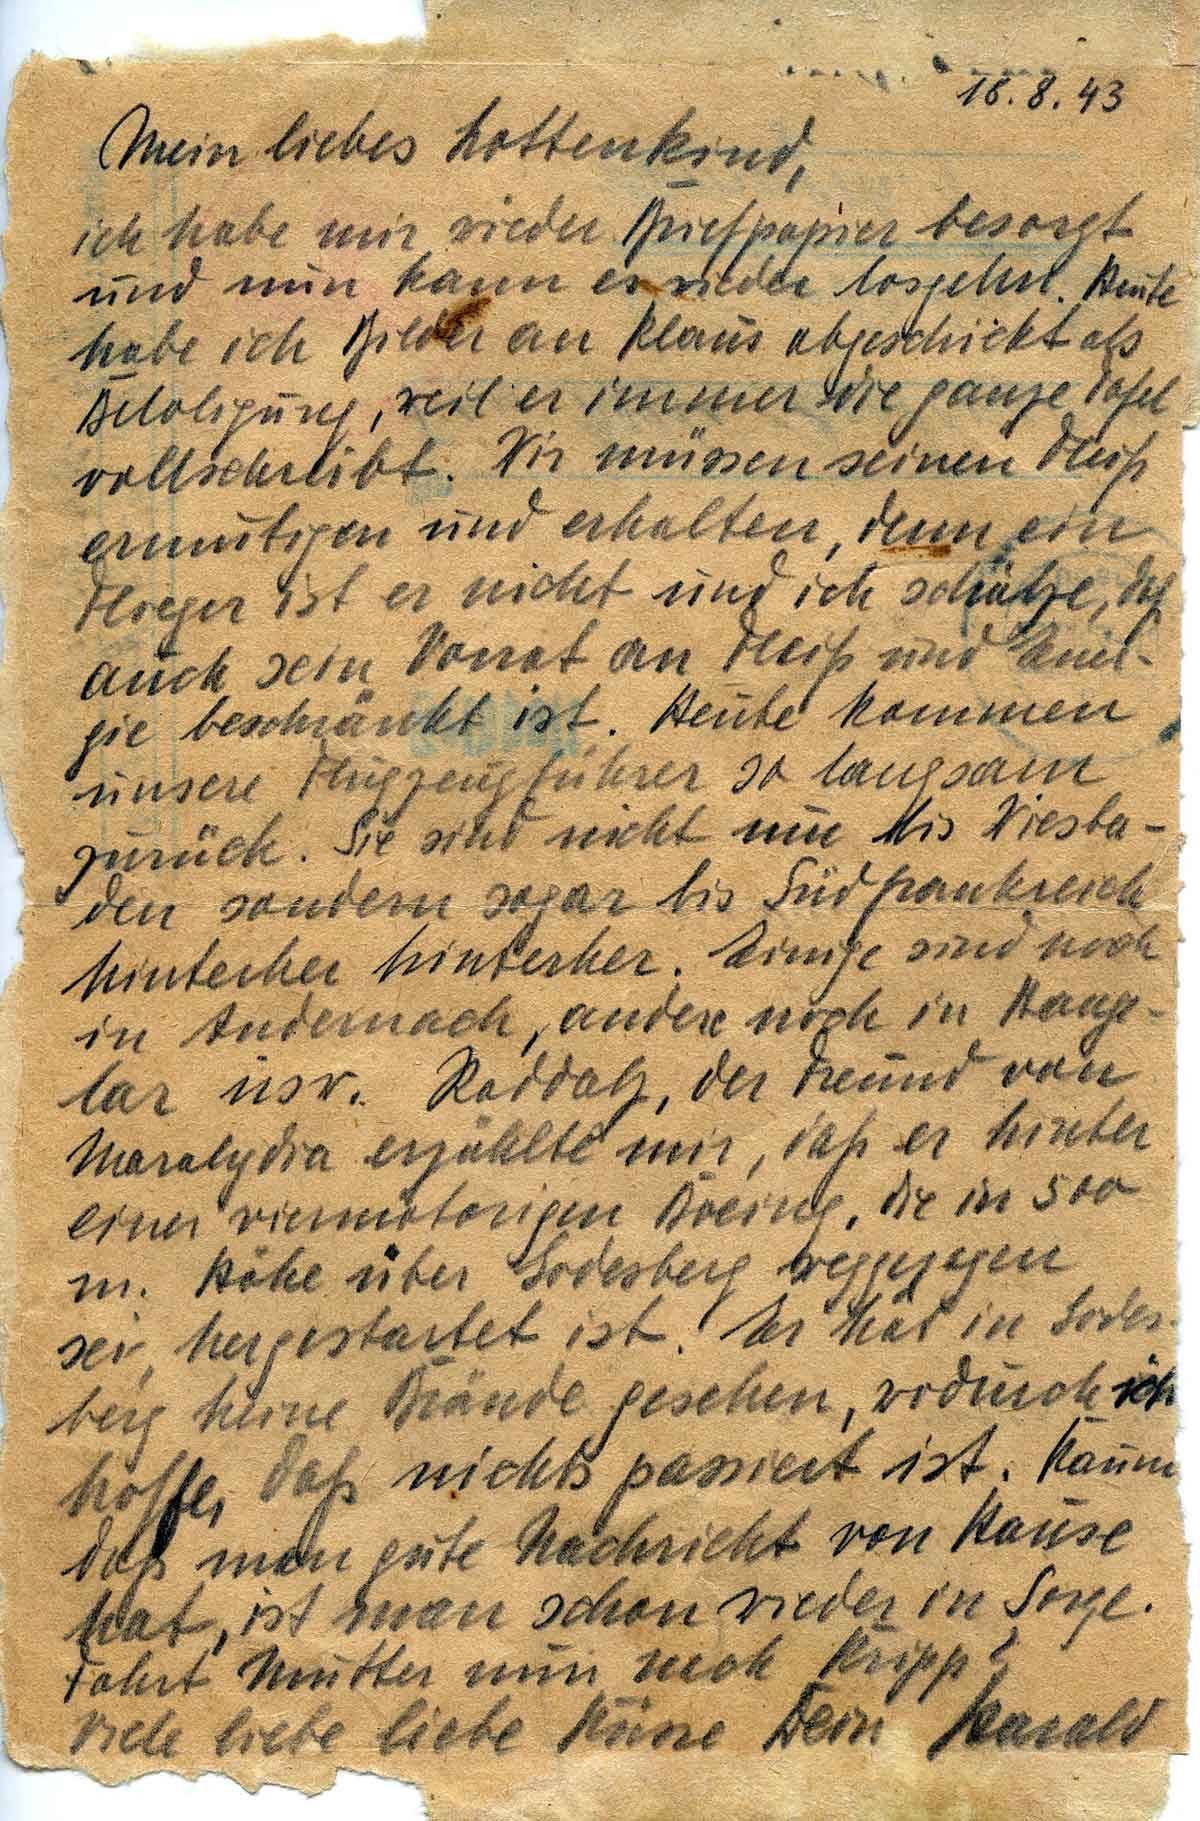 18.8.43
Mein liebes Lottenkind,
ich habe mir wieder Briefpapier besorgt
und nun kann es wieder losgehn. Heute
habe ich Bilder an Klaus abgeschickt als
Belobigung, weil er immer die ganze Tafel
vollschreibt. Wir müssen seinen Fleiß
ermutigen und erhalten, denn ein
Flieger ist er nicht und ich schätze, daß
auch sein Vorrat an Fleiß und Ener-
gie beschränkt ist. Heute kommen
unsere Flugzeugführer so langsam
zurück. Sie sind nicht nur bis Wiesba-
den sondern sogar bis Südfrankreich
hinterher hinterher. Einige sind noch
in Andernach, andere noch in Hange-
lar usw. Raddatz, der Freund von
Maralydia erzählte mir, daß er hinter
einer viermotorigen Boeing, die in 500
m. Höhe über Godesberg weggezogen
sei, hergestartet ist. Er hat in Godes-
berg keine Brände gesehen, wodurch ich
hoffe, daß nichts passiert ist. Kaum
daß man gute Nachricht von Hause
hat, ist man schon wieder in Sorge.
Fährt Mutter nun nach Kripp?
Viele liebe liebe Küsse Dein Harald